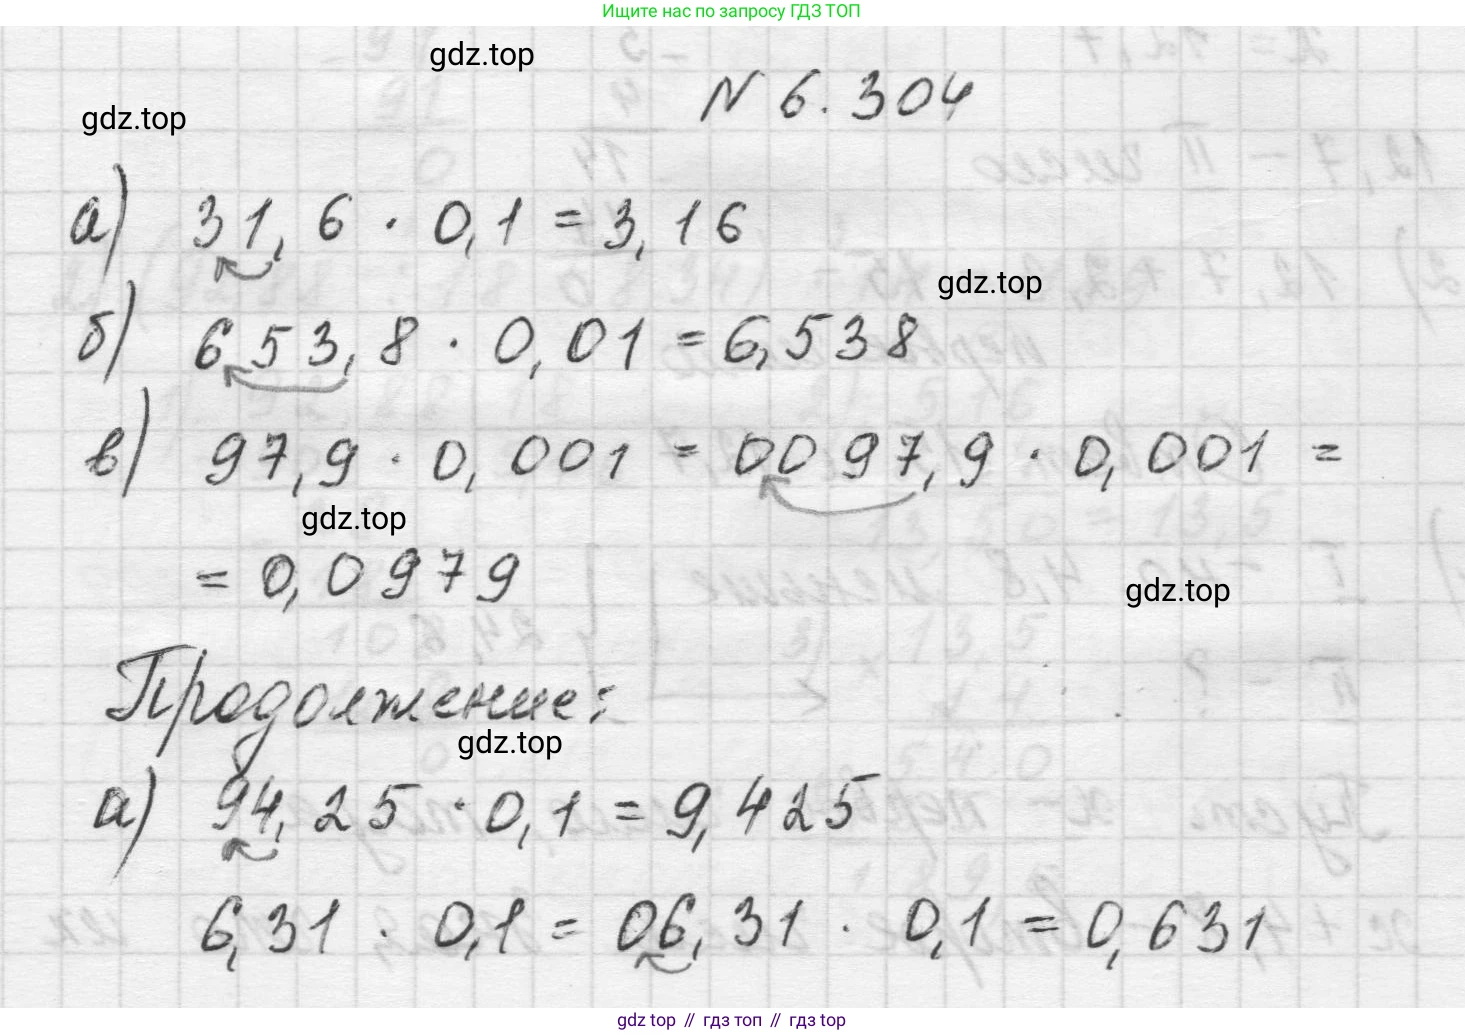 Ищите нас по запросу ГДЗ ТОП
gdz.top
N 6.304
gdz.top
а) 31,6 · 0,1 = 3,16
gdz.top
б) 653,8 · 0,01 = 6,538
в) 97,9 · 0,001 = 0097,9 · 0,001 =
gdz.top
= 0,0979
gdz.top
Продолжение:
gdz.top
а) 94,25 · 0,1 = 9,425
6,31 · 0,1 = 06,31 · 0,1 = 0,631
gdz top // гдз топ // gdz top